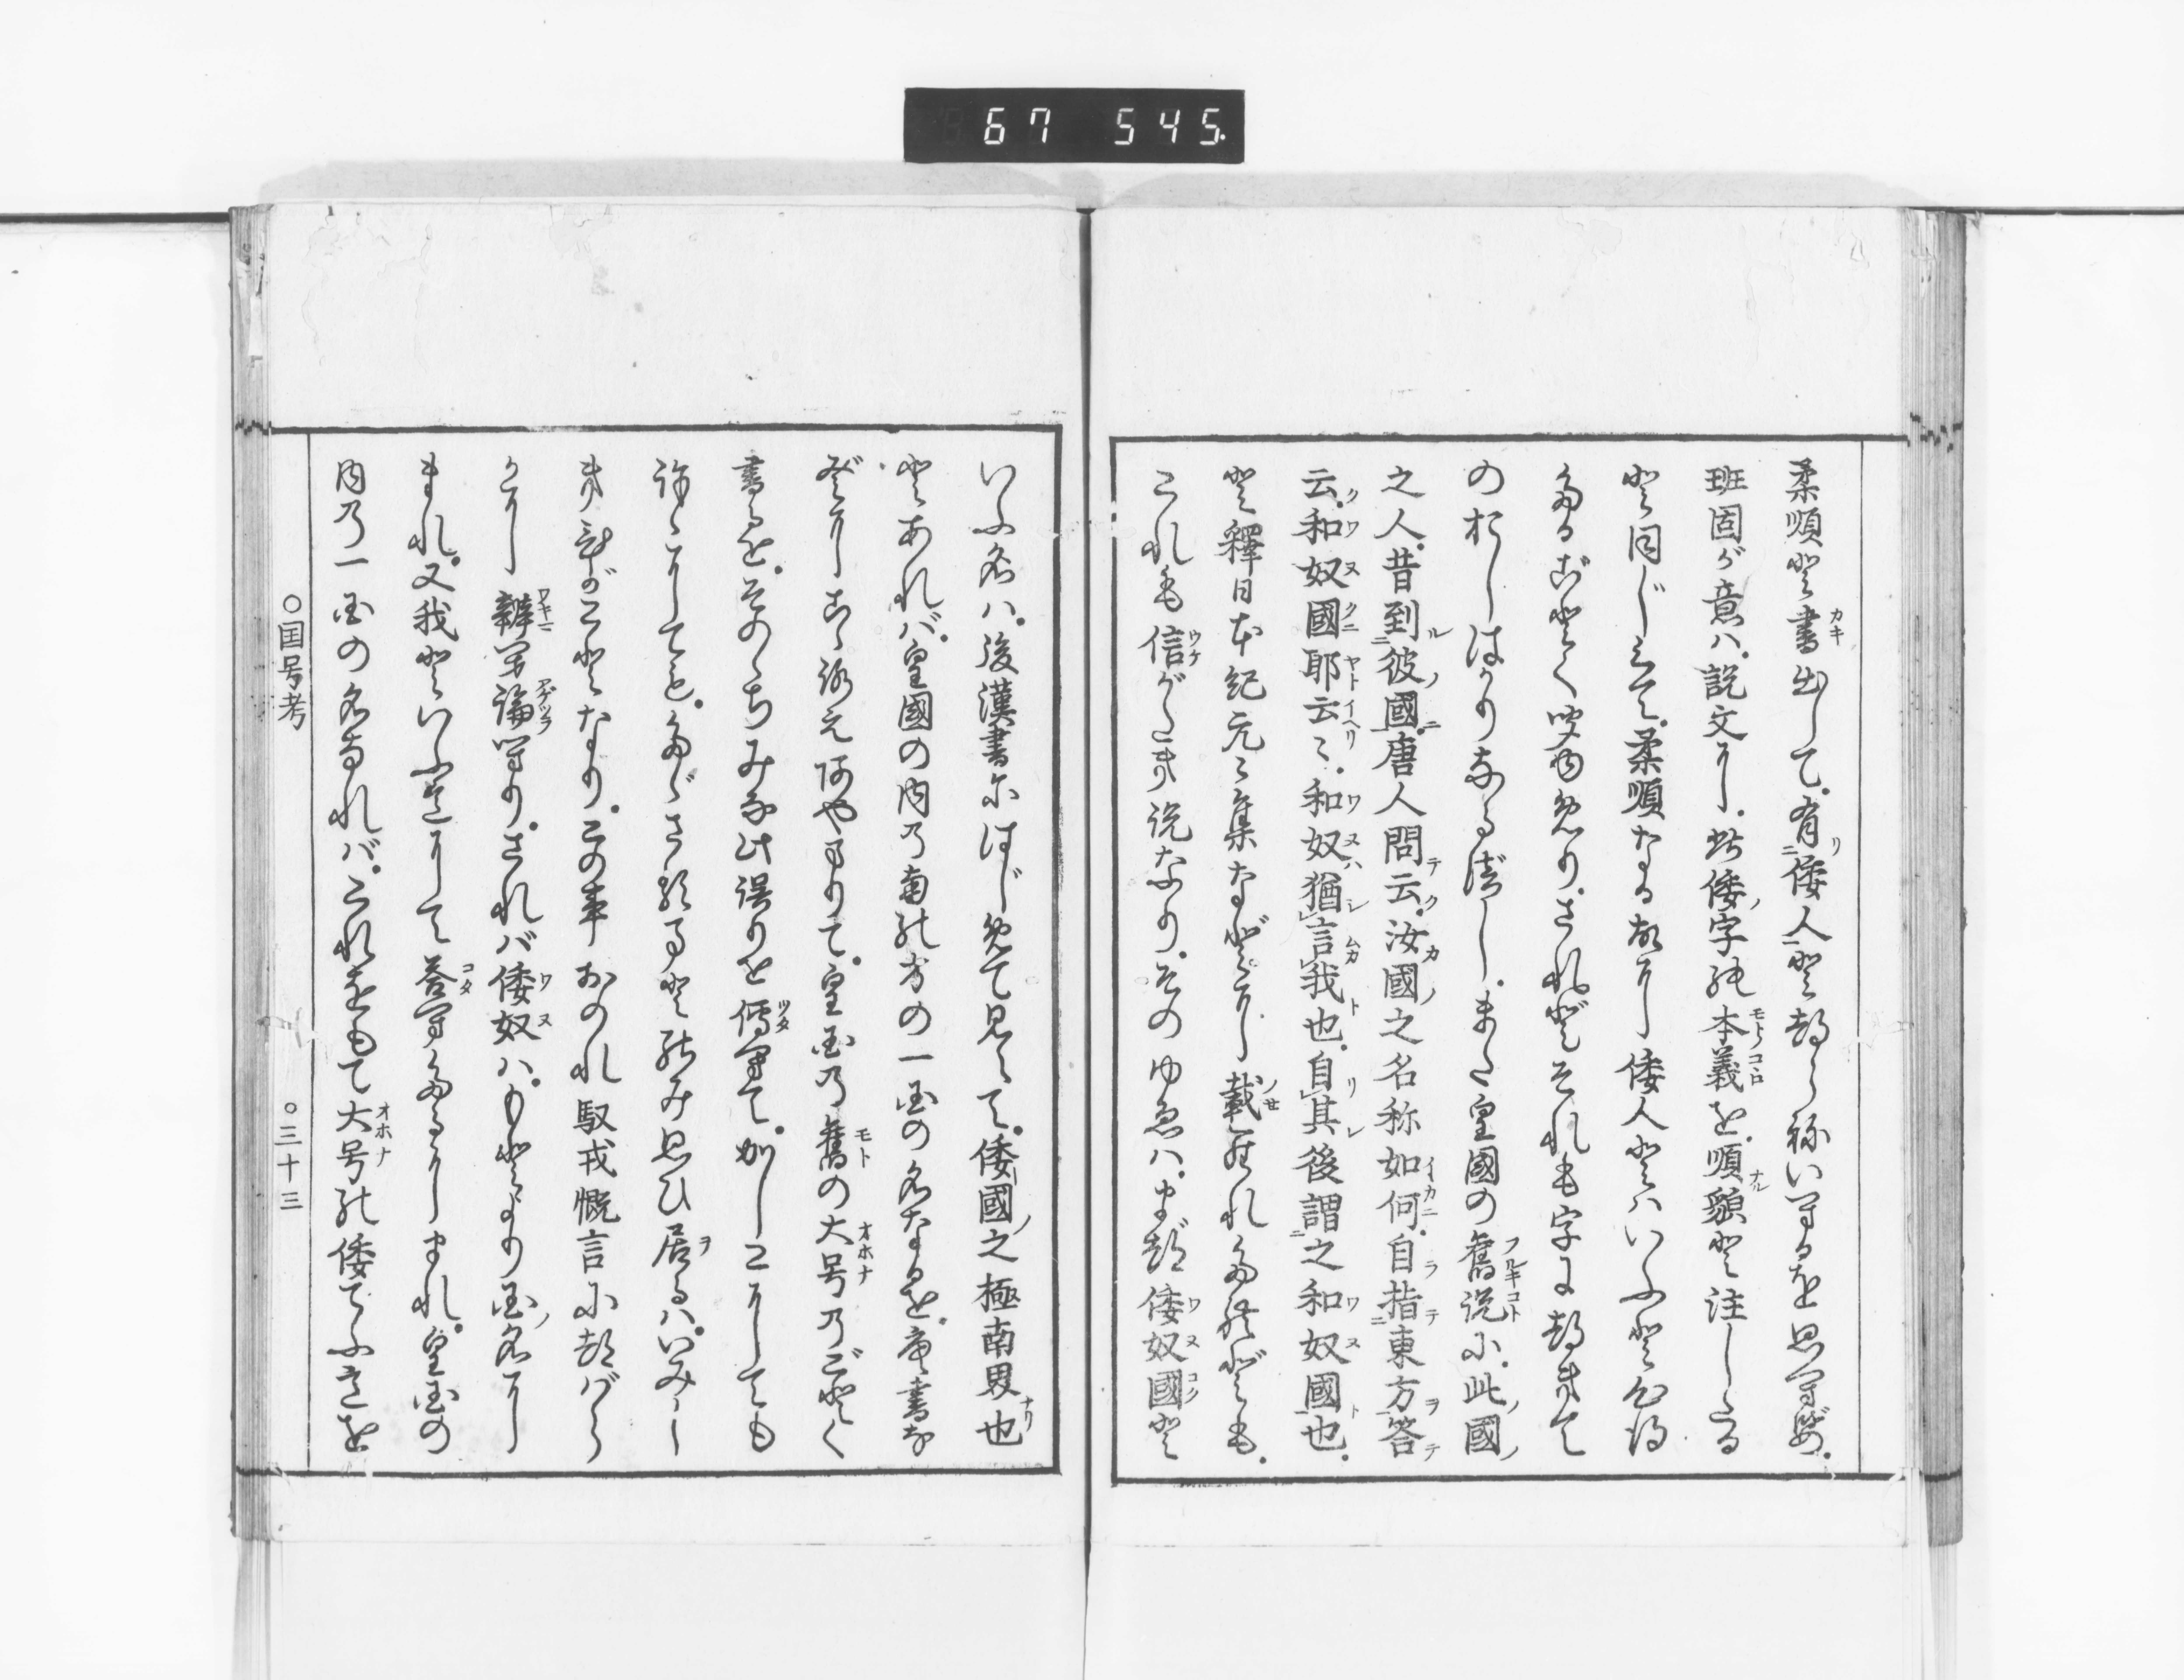 67 545.
柔順と書出して。有倭人とつらねいへるを思へば。
班固が意ハ。説文に。此倭字の本義を。順貌と注したる
と同じくて。柔順なる故に倭人とハいふと心得
たるごとく聞ゆめり。されどそれも字に つきて
のおしはかりなる べし。また皇國の舊説に。此國
之人。昔到彼國。唐人問云。汝國之名称如何。自指東方答
云。和奴國耶云〻。和奴猶言我也。自其後謂之和奴國也。
と釋日本紀元〻集などに載られたれども。
これも信がたき説なり。そのゆゑハ。まづ倭奴國と
いふ名ハ。後漢書にはじめて見えて。倭國之極南界也
とあれバ。皇國の内の南の方の一国の名なるを。唐書な
どにこゝろえあやまりて。皇国の舊の大号のごとく
書るを。そのゝちみな此誤りを傳へて。かしこにしても
にしても。たゞさる事とのみ思ひ居るハ。いみし
きひがことなり。この事おのれ馭戎慨言につばら
かに辨へ論へり。されバ倭奴ハ。もとより国名に
まれ。又我といふ意にして答へたるにしまれ。皇国の
内の一国の名なれバ。これをもて大号の倭てふ意を
○国号考
○三十三